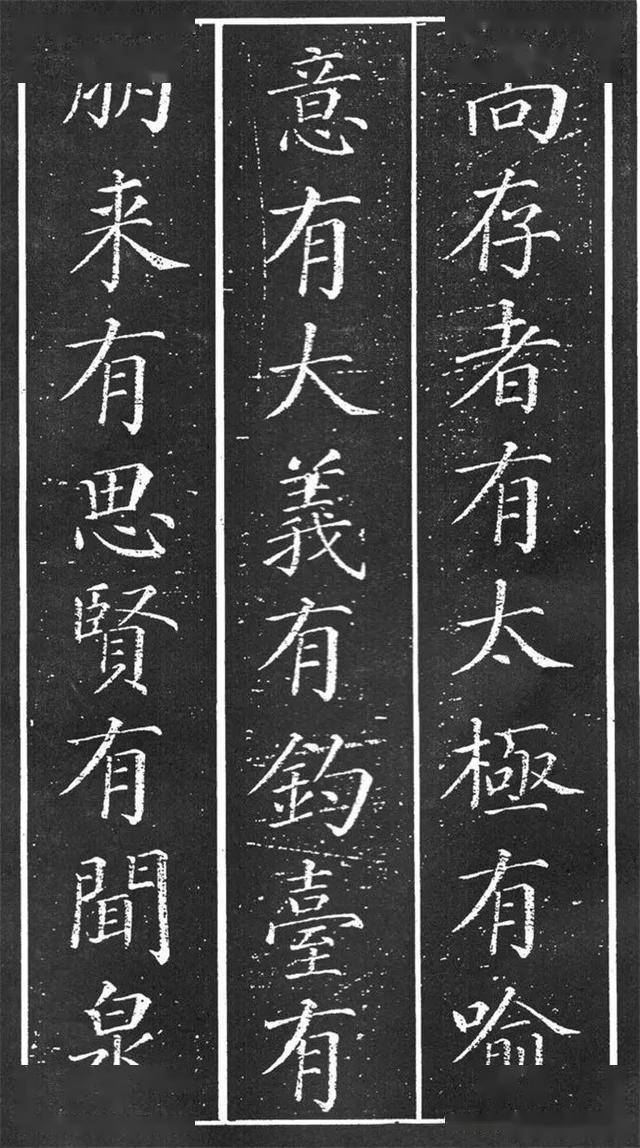 向存者有太極有喻
意有大義有鈞臺有
朋来有思賢有聞泉